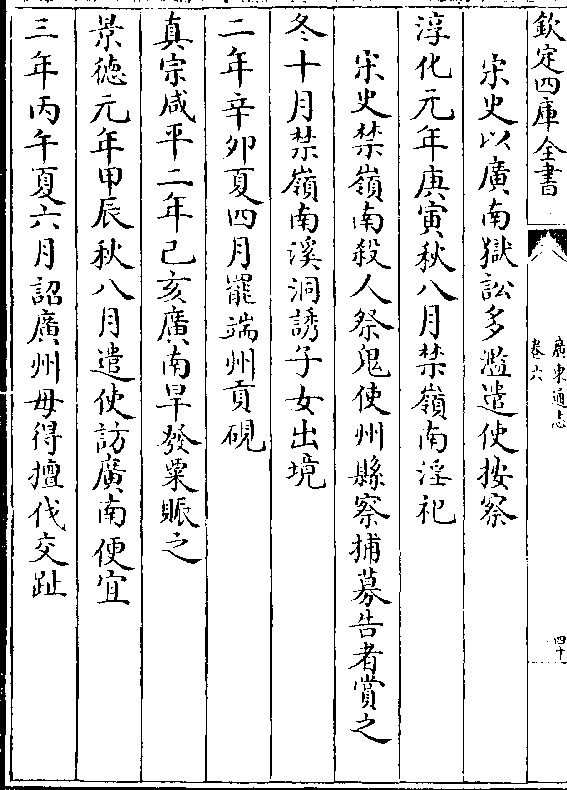 欽定四庫全書
廣東通志
卷六
四十
宋史以廣南獄訟多濫遣使按察
淳化元年庚寅秋八月禁嶺南淫祀
宋史禁嶺南殺人祭鬼使州縣察捕募告者賞之
冬十月禁嶺南溪洞誘子女出境
二年辛卯夏四月罷端州貢硯
真宗咸平二年己亥廣南旱發粟賑之
景德元年甲辰秋八月遣使訪廣南便宜
三年丙午夏六月詔廣州毋得擅伐交趾